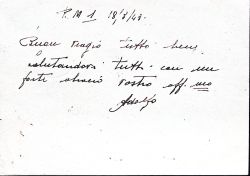 P.M 1 18/8/43.
Buon viagio tutto bene
salutandovi tutti con un
forte abracio vostro aff. mo
Adolfo